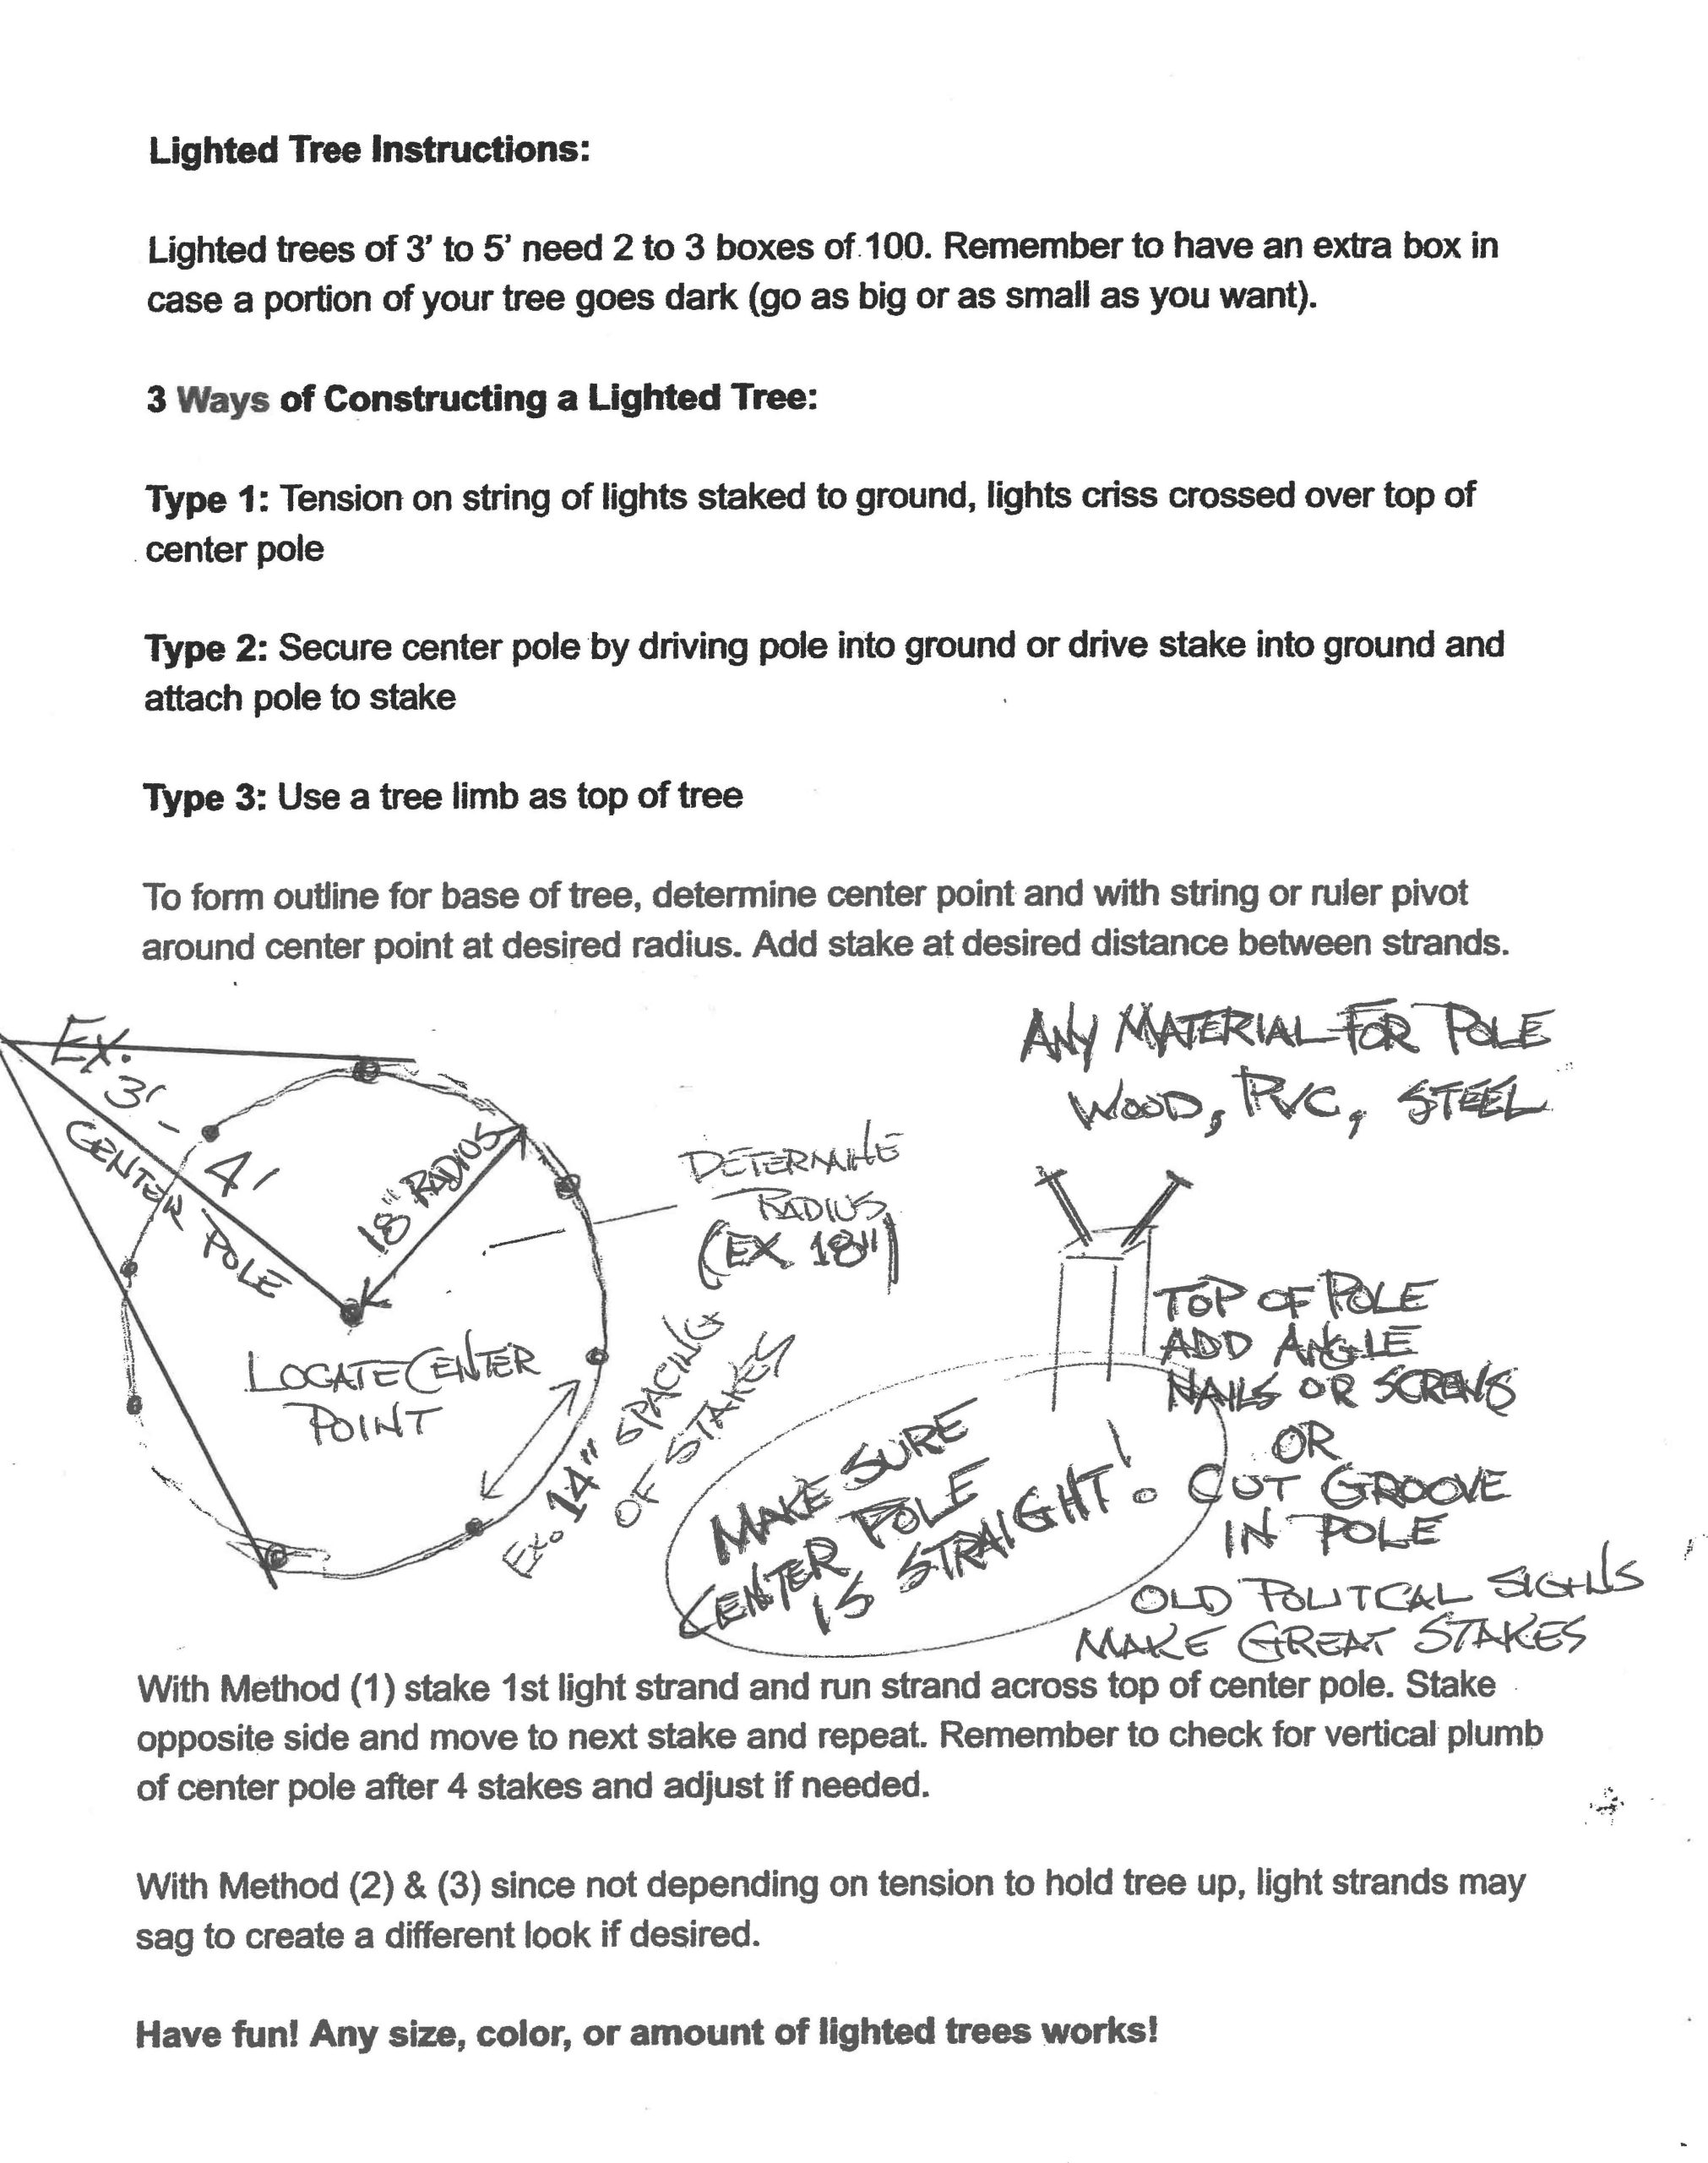 Lighted Tree Instructions:
Lighted trees of 3' to 5' need 2 to 3 boxes of 100. Remember to have an extra box in
case a portion of your tree goes dark (go as big or as small as you want).
3 Ways of Constructing a Lighted Tree:
Type 1: Tension on string of lights staked to ground, lights criss crossed over top of
center pole
Type 2: Secure center pole by driving pole into ground or drive stake into ground and
attach pole to stake
Type 3: Use a tree limb as top of tree
To form outline for base of tree, determine center point and with string or ruler pivot
around center point at desired radius. Add stake at desired distance between strands.
EX.
3' - 4'
CENTER POLE
18" RADIUS
LOCATE CENTER
POINT
DETERMINE
RADIUS
(EX 18")
EX. 14" SPACING
OF STAKES
ANY MATERIAL FOR POLE
WOOD, PVC, STEEL
TOP OF POLE
ADD ANGLE
NAILS OR SCREWS
OR
CUT GROOVE
IN POLE
MAKE SURE
CENTER POLE
IS STRAIGHT!
OLD POLITCAL SIGNS
MAKE GREAT STAKES
With Method (1) stake 1st light strand and run strand across top of center pole. Stake
opposite side and move to next stake and repeat. Remember to check for vertical plumb
of center pole after 4 stakes and adjust if needed.
With Method (2) & (3) since not depending on tension to hold tree up, light strands may
sag to create a different look if desired.
Have fun! Any size, color, or amount of lighted trees works!